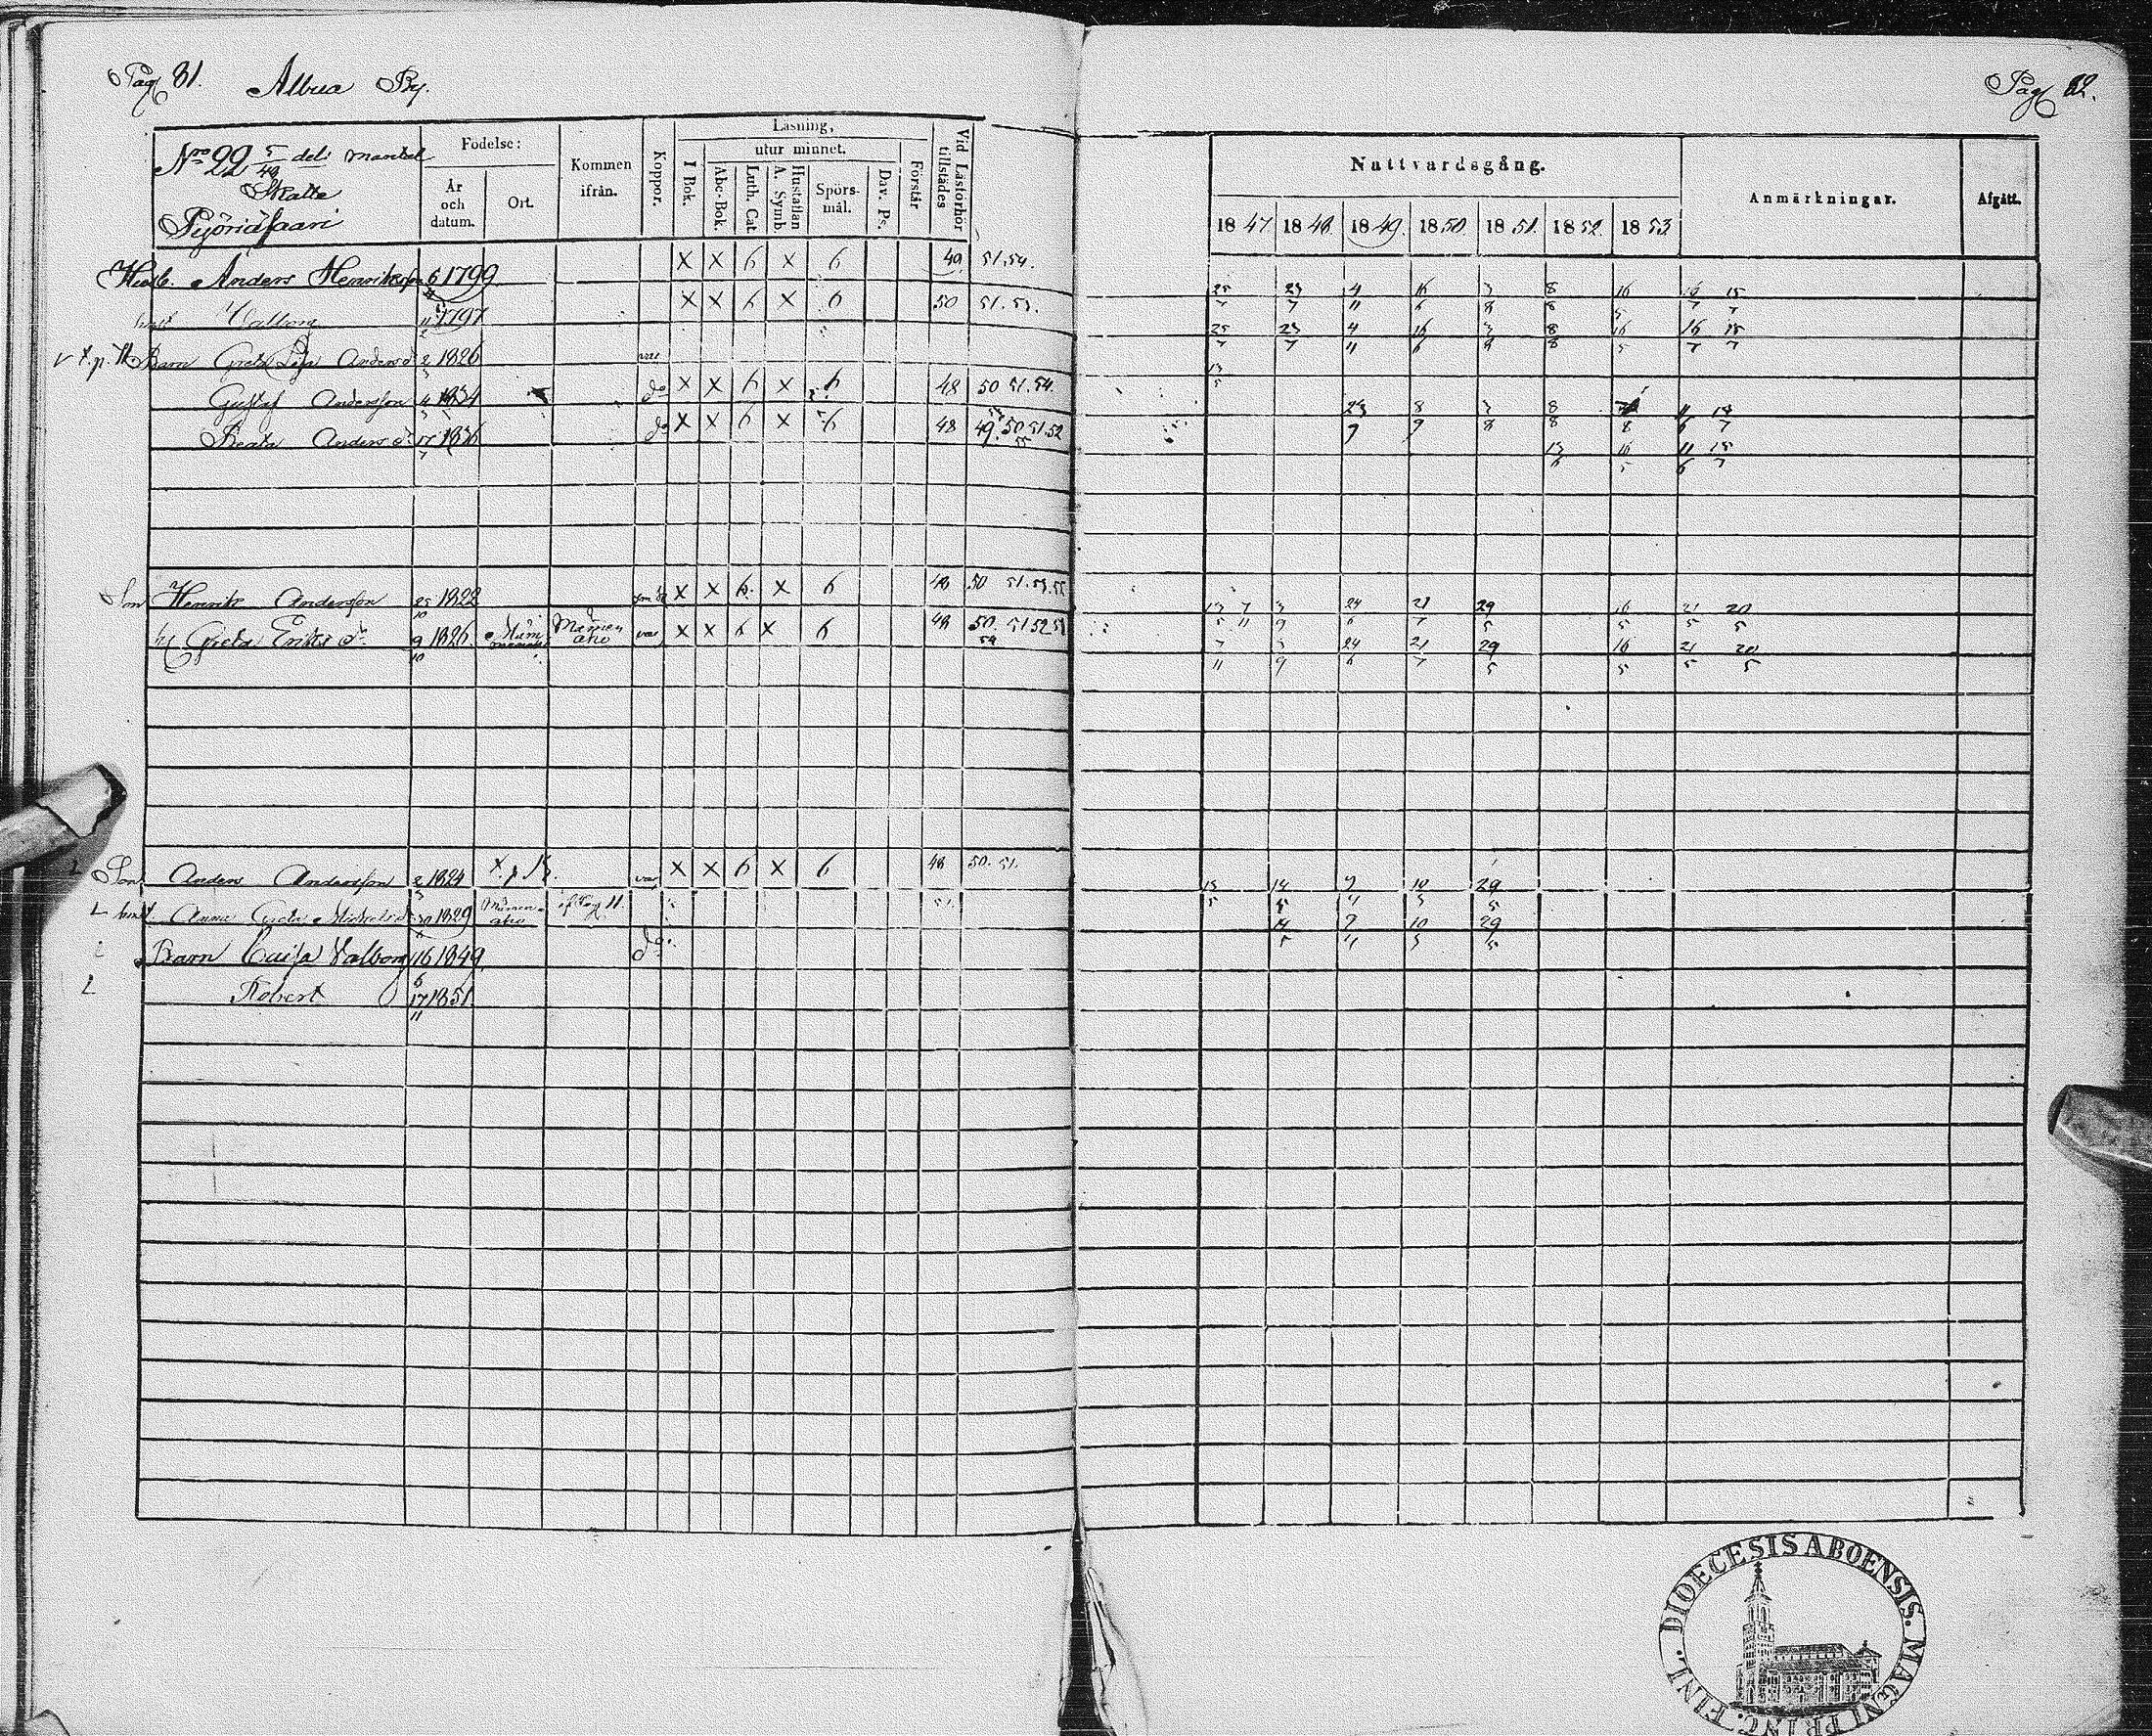 Pag 81. Albua By.
Pag 82.
Nro 22 5/48 dels mantal
Skatte
Pyöriäsaari
Födelse:
År och datum.
Ort.
Kommen ifrån.
Koppor.
Läsning,
utur minnet.
I Bok.
Abc-Bok.
Luth. Cat.
Hustaflan A. Symb.
Spörsmål.
Dav. Ps.
Förstår
Vid Läsförhör tillstädes
Nattvardsgång.
Anmärkningar.
Afgått.
1847 1848 1849. 1850 1851 1852 1853
Husb. Anders Henriksson 6 1799 X X 6 X 6 49 51.54.
25 23 4 16 3 8 16 16 15
7 7 11 6 8 8 5 7 7
Valborg 11/2 1797 X X 6 X 6 50 51. 53.
25 23 4 16 3 8 16 16 15
7 7 11 6 8 8 5 7 7
Barn Greta Lisa Andersd 2/3 1826 vac
13
5
Gustaf Andersson 4 1834 do X X 6 X 6 48 50 51.54.
23 8 3 8
9 9 8 8 8 6 7
Beata Andersd 17/7 1836 do X X 6 X 6 48 49. 50 51.52
55
13 16 11 15
6 5 6 7
Son Henrik Andersson 25/10 1822 X X 6. X 6 48 50 51.53.55
13 7 3 24 21 29 16 21 20
5 11 9 6 7 5 5 5 5
h Greta Eriksd 9/10 1826. vac X X 6 X 6 48 50. 51 52 53
54
7 3 24 21 29 16 21 20
11 9 6 7 5 5 5 5
Son Anders Andersson 2/3 1824 vac X X 6 X 6 48 50. 51.
13 14 9 10 29
5 5 4 3 5
Anna Greta Michelsd 30 1829 af Pag 11
14 9 10 29
5 4 3 5
Barn Caisa Valborg 16/6 1849. do
Robert 17/11 1851
DIOECESIS ABOENSIS. MAGNI PRINC. FINL.